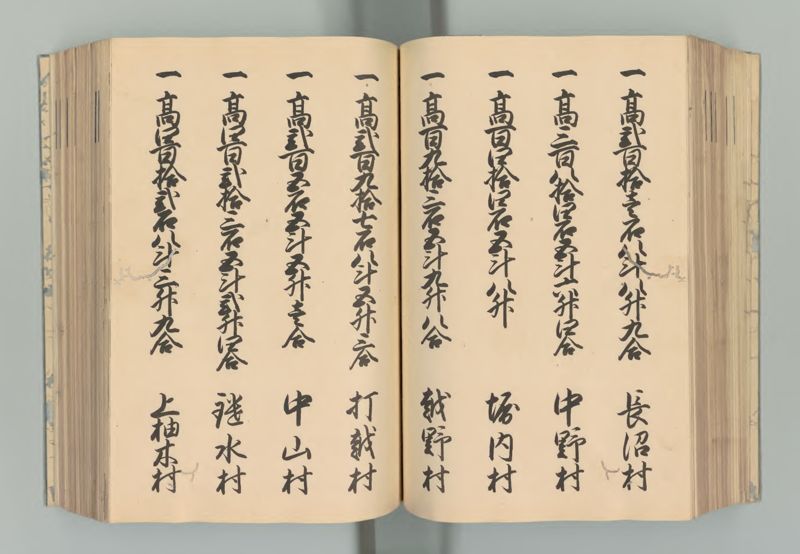 一 高弐百拾壱石八斗八升九合 長沼村
一 高三百八拾四石五斗六升四合 中野村
一 高百四拾四石五斗八升 堀内村
一 高百九拾三石五斗九升八合 越野村
一 高弐百九拾七石八斗五升三合 打越村
一 高弐百五石五斗五升壱合 中山村
一 高四百弐拾三石五斗弐升四合 鑓水村
一 高四百拾弐石八斗三升九合 上柚木村